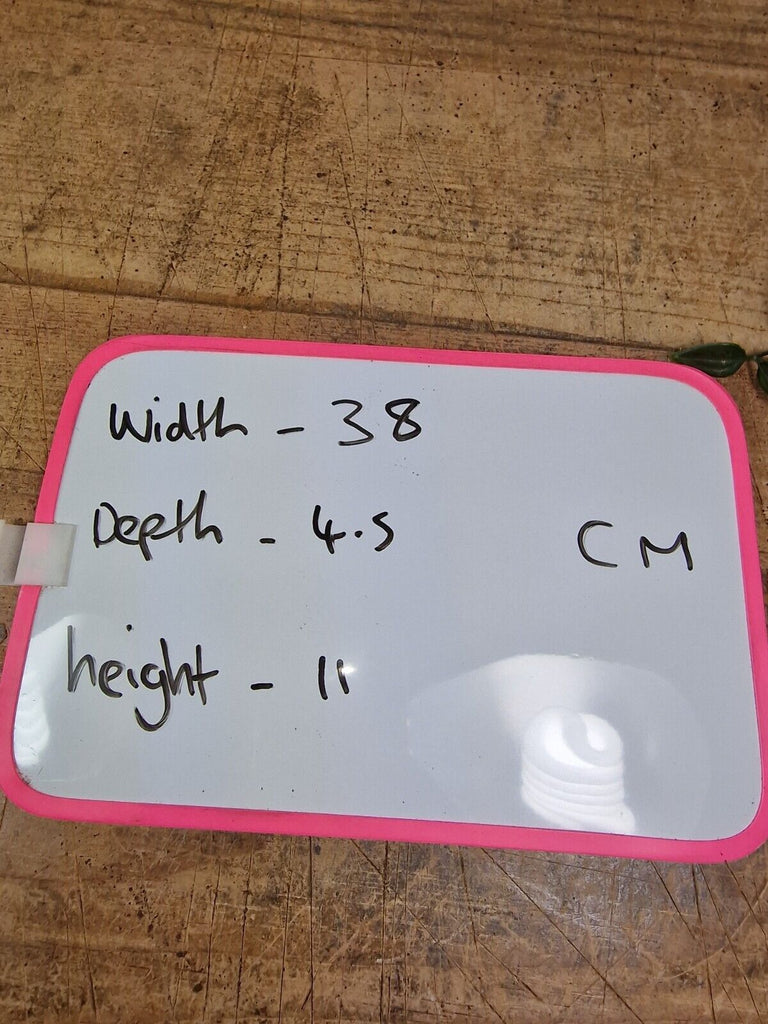 Width - 38
Depth - 4.5
CM
height - 11